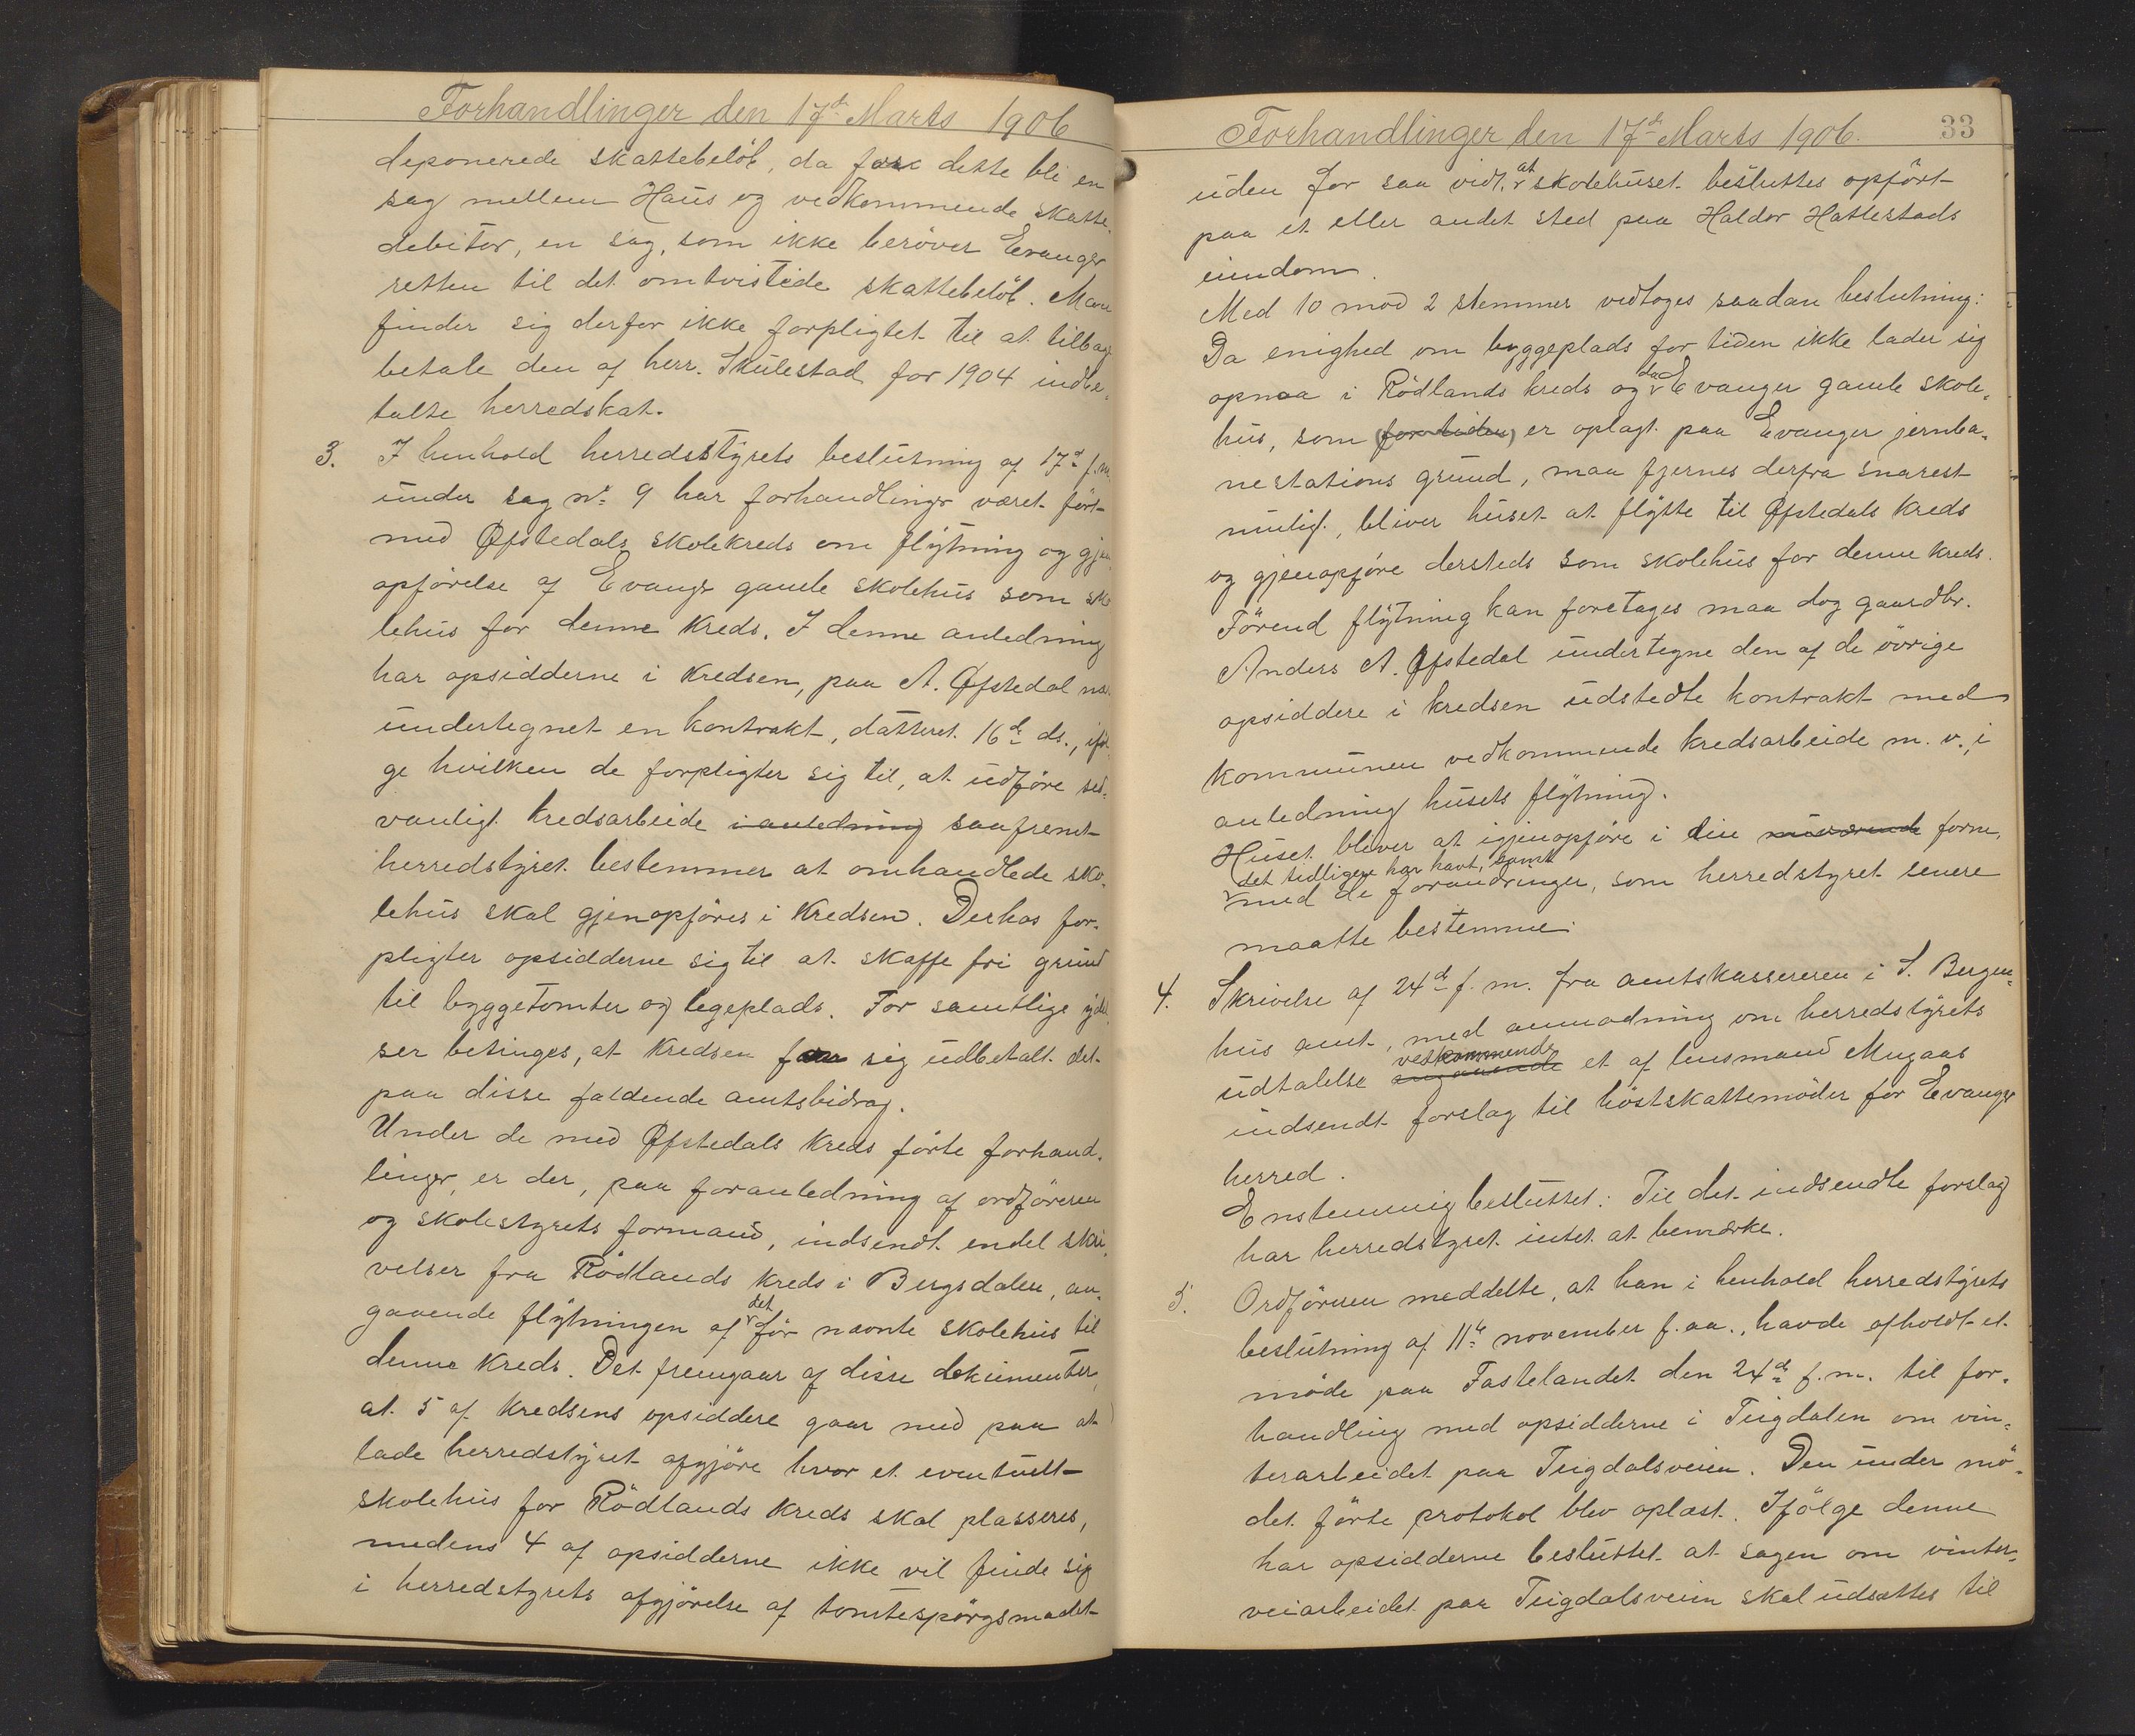 Forhandlinger den 17de Marts 1906
deponerede skattebeløb, da faar dette bli en
sag mellem Haus og vedkommende skatte-
debitor, en sag, som ikke berøver Evanger
retten til det omtvistede skattebeløb. Man
finder sig derfor ikke forpligtet til at tilbage
betale den af herr. Skulestad for 1904 indbe-
talte herredskat.
3. I henhold herredsstyrets beslutning af 17de f.m.
under sag nr. 9 har forhandlinger været ført
med Øfstedals skolekreds om flytning og gjen
opførelse af Evanger gamle skolehus som sko
lehus for denne kreds. I denne anledning
har opsidderne i kredsen, paa A. Øfstedal nær
undertegnet en kontrakt, datteret 16de ds., iføl
ge hvilken de forpligter sig til, at udføre sed-
vanligt kredsarbeide i anledning saafremt
herredstyret bestemmer at omhandlede sko-
lehus skal gjenopføres i kredsen. Derhos for-
pligter opsidderne sig til at skaffe fri grund
til byggetomter og legeplads. For samtlige ydel
ser betinges, at kredsen faar sig udbetalt det
paa disse faldende amtsbidrag.
Under de med Øfstedals kreds førte forhand-
linger, er der, paa foranledning af ordføreren
og skolestyrets formand, indsendt endel skri-
velser fra Rødlands kreds i Bergsdalen, an-
gaaende flytningen af det før nævnte skolehus til
denne kreds. Det fremgaar af disse dokumenter,
at 5 af kredsens opsiddere gaar med paa at
lade herredstyret afgjøre hvor et eventuelt
skolehus for Rødlands kreds skal plasseres,
medens 4 af opsidderne ikke vil finde sig
i herredstyrets afgjørelse af tomtespørgsmaalet
Forhandlinger den 17de Marts 1906. 33
uden for saa vidt, at skolehuset besluttes opført
paa et eller andet sted paa Haldor Hattestads
eiendom.
Med 10 mod 2 stemmer vedtoges saadan beslutning:
Da enighed om byggeplads for tiden ikke lader sig
opnaa i Rødlands kreds og da Evanger gamle skole-
hus, som (for tiden) er oplagt paa Evanger jernba-
nestations grund, maa fjernes derfra snarest
mulig, bliver huset at flytte til Øfstedals kreds
og gjenopføre dersteds som skolehus for denne kreds.
Førend flytning kan foretages maa dog gaardbr.
Anders A. Øfstedal undertegne den af de øvrige
opsiddere i kredsen udstedte kontrakt med
kommunen vedkommende kredsarbeide m.v., i
anledning husets flytning.
Huset bliver at igjenopføre i den nuværende form,
det tidligere har havt, samt
med de forandringer, som herredstyret senere
maatte bestemme.
4. Skrivelse af 24de f.m. fra amtskassereren i S. Bergen-
hus amt, med anmodning om herredstyrets
udtalelse angaaende vedkommende et af lensmand Mugaas
indsendt forslag til høstskattemøder for Evanger
herred.
Enstemmig besluttet: Til det indsendte forslag
har herredstyret intet at bemærke.
5. Ordføreren meddelte, at han i henhold herredstyrets
beslutning af 11te november f.aa., havde afholdt et
møde paa Fastelandet den 24de f.m. til for-
handling med opsidderne i Teigdalen om vin-
terarbeidet paa Teigdalsveien. Den under mø-
det førte protokol blev oplæst. Ifølge denne
har opsidderne besluttet at sagen om vinter-
veiarbeidet paa Teigdalsveien skal udsættes til